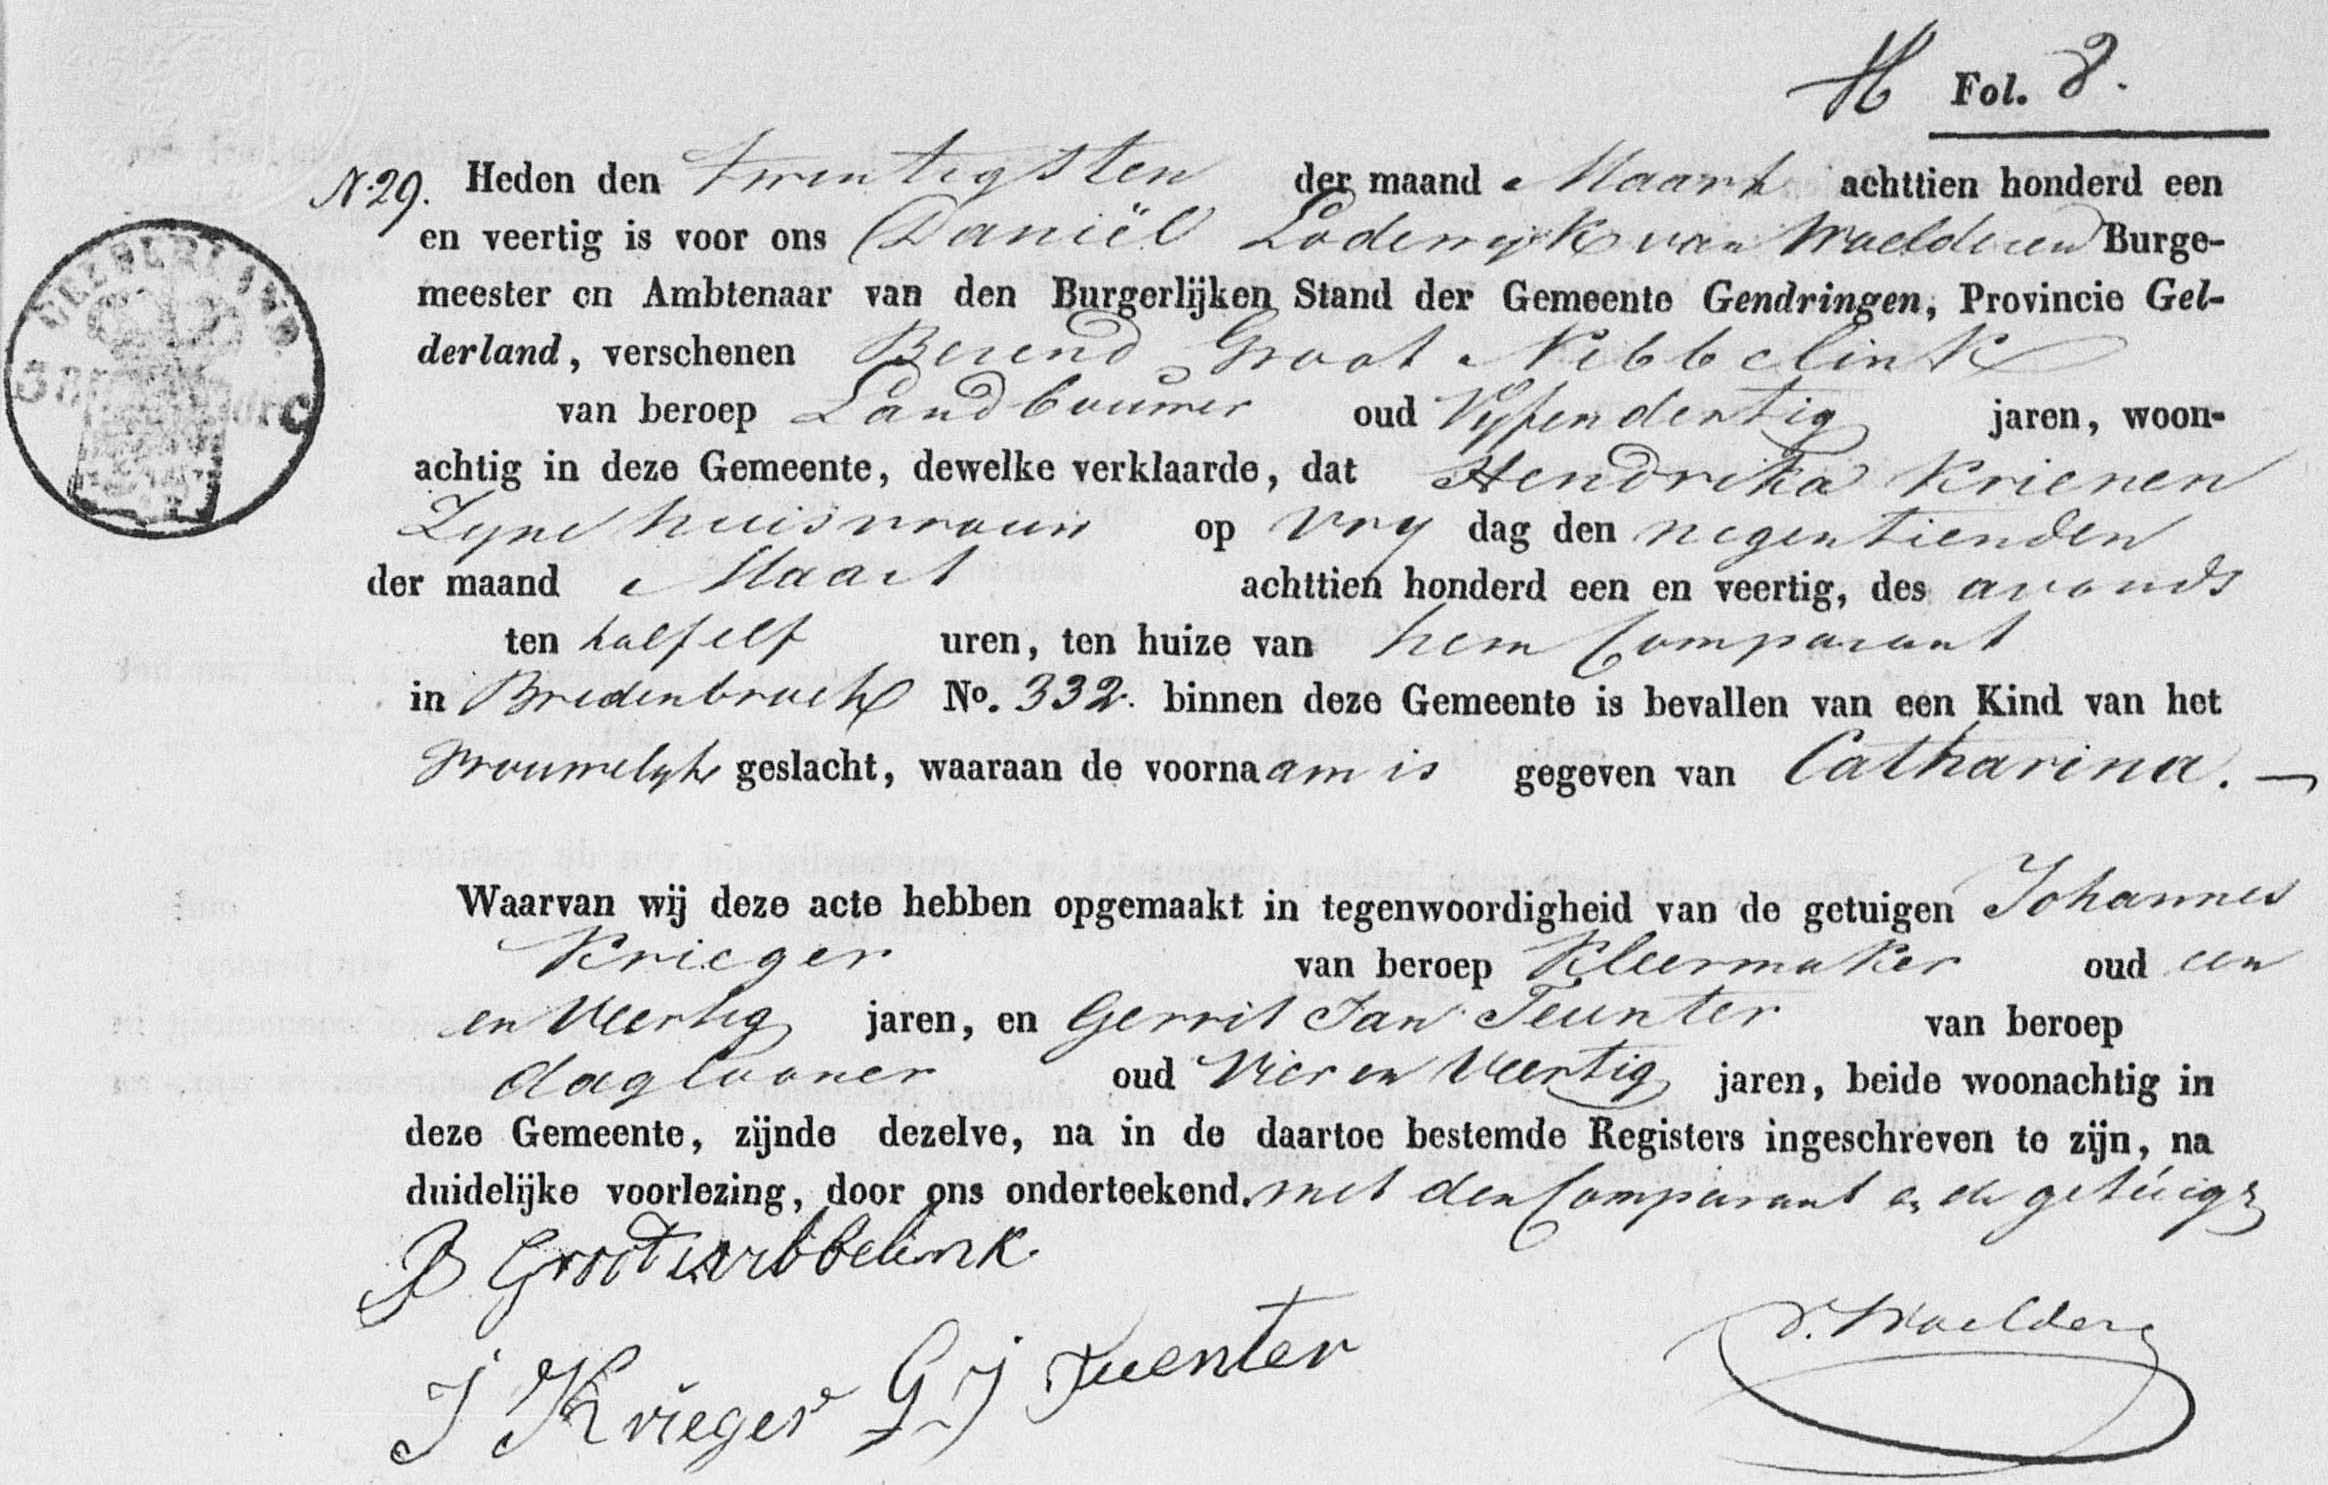 Fol. 8.
N. 29. Heden den twintigsten der maand Maart achttien honderd een
en veertig is voor ons Daniël Lodewyk van Waelderen Burge-
meester en Ambtenaar van den Burgerlijken Stand der Gemeente Gendringen, Provincie Gel-
derland, verschenen Berend Groot Nibbelink
van beroep Landbouwer oud Vyfendertig jaren, woon-
achtig in deze Gemeente, dewelke verklaarde, dat Hendrika Krienen
Zyne huisvrouw op Vry dag den negentienden
der maand Maart achttien honderd een en veertig, des avonds
ten half elf uren, ten huize van hem Comparant
in Bredenbroek No. 332. binnen deze Gemeente is bevallen van een Kind van het
Vrouwelyke geslacht, waaraan de voornaam is gegeven van Catharina. —
Waarvan wij deze acte hebben opgemaakt in tegenwoordigheid van de getuigen Johannes
Krieger van beroep Kleermaker oud een
en Veertig jaren, en Gerrit Jan Teunter van beroep
daglooner oud Vier en Veertig jaren, beide woonachtig in
deze Gemeente, zijnde dezelve, na in de daartoe bestemde Registers ingeschreven te zijn, na
duidelijke voorlezing, door ons onderteekend. met den Comparant en de getuigen
B Groot Nibbelink
J Krieger G J Tuenter